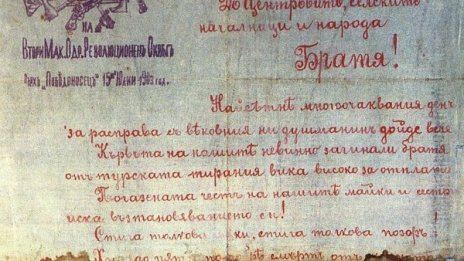 НА
ВТОРИ МАК. ОДР. РЕВОЛЮЦИОНЕНЪ ОКРѪГЪ
„ПОБѢДОНОСЕЦЪ" ЮНИ 1903 год.
До Центровитѣ, селскитѣ
началници и народа
Братя!
Най сѣтнѣ многоаквания день
за расправа съ вѣковния ни душманинъ дойде вече
Кървьта на нашитѣ невинно загинали братя
отъ турската тирания вика високо за отплата
Погазената честь на нашитѣ майки и сестр
иска възтановяванието си!
Стига толкова ки, стига толкова позоръ!
смърть отъ